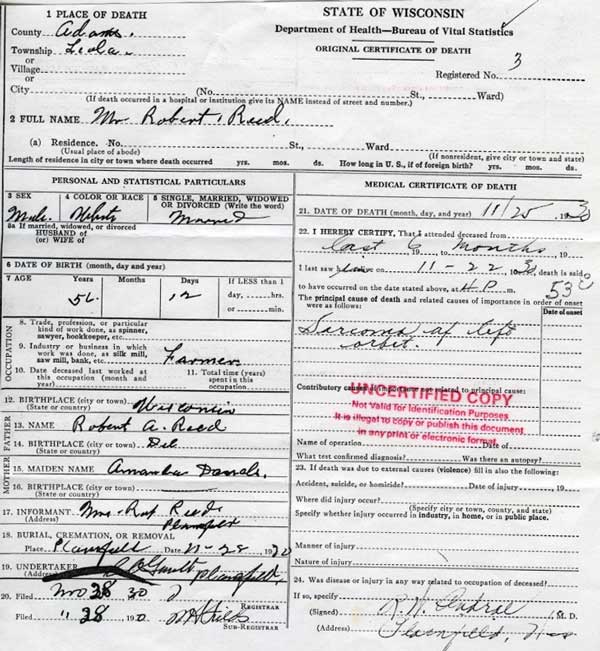 STATE OF WISCONSIN
Department of Health—Bureau of Vital Statistics
ORIGINAL CERTIFICATE OF DEATH
1 PLACE OF DEATH
County Adams.
Township Leola.
or
Village
or
Registered No. 3
City (No. St., Ward)
(If death occurred in a hospital or institution give its NAME instead of street and number.)
2 FULL NAME Mr Robert Reed.
(a) Residence. No. St., Ward
(Usual place of abode) (If nonresident, give city or town and state)
Length of residence in city or town where death occurred yrs. mos. ds. How long in U. S., if of foreign birth? yrs. mos. ds.
PERSONAL AND STATISTICAL PARTICULARS
3 SEX 4 COLOR OR RACE 5 SINGLE, MARRIED, WIDOWED OR DIVORCED (Write the word)
Male. White Married
5a If married, widowed, or divorced
HUSBAND of
(or) WIFE of
6 DATE OF BIRTH (month, day and year)
7 AGE Years Months Days If LESS than 1
56 12 day, hrs.
or min.
OCCUPATION
8. Trade, profession, or particular
kind of work done, as spinner,
sawyer, bookkeeper, etc.
9. Industry or business in which
work was done, as silk mill,
saw mill, bank, etc. Farmer
10. Date deceased last worked at
this occupation (month and
year)
11. Total time (years)
spent in this
occupation
12. BIRTHPLACE (city or town) Wisconsin
(State or country)
FATHER
13. NAME Robert A. Reed
14. BIRTHPLACE (city or town)
(State or country)
MOTHER
15. MAIDEN NAME Amanda
16. BIRTHPLACE (city or town)
(State or country)
17. INFORMANT Mrs. Reed.
(Address) Plainfield
18. BURIAL, CREMATION, OR REMOVAL
Place Plainfield Date 11-28 1930
19. UNDERTAKER Plainfield,
(Address)
20. Filed 28 30
REGISTRAR
Filed " 28 1930
SUB-REGISTRAR
MEDICAL CERTIFICATE OF DEATH
21. DATE OF DEATH (month, day, and year) 11/25 1930
22. I HEREBY CERTIFY, That I attended deceased from
last 6 months
19 to 19
I last saw alive on 11-22 1930, death is said
to have occurred on the date stated above, at P. m.
530
The principal cause of death and related causes of importance in order of onset
were as follows:
Date of onset
Sarcoma of left
orbit.
Contributory causes of importance not related to principal cause:
UNCERTIFIED COPY
Not Valid for Identification Purposes
It is illegal to copy or publish this document
in any print or electronic format.
Name of operation Date of
What test confirmed diagnosis? Was there an autopsy?
23. If death was due to external causes (violence) fill in also the following:
Accident, suicide, or homicide? Date of injury , 19
Where did injury occur?
(Specify city or town, county, and state)
Specify whether injury occurred in industry, in home, or in public place.
Manner of injury
Nature of injury
24. Was disease or injury in any way related to occupation of deceased?
If so, specify
(Signed) M. D.
(Address) Plainfield, Wis